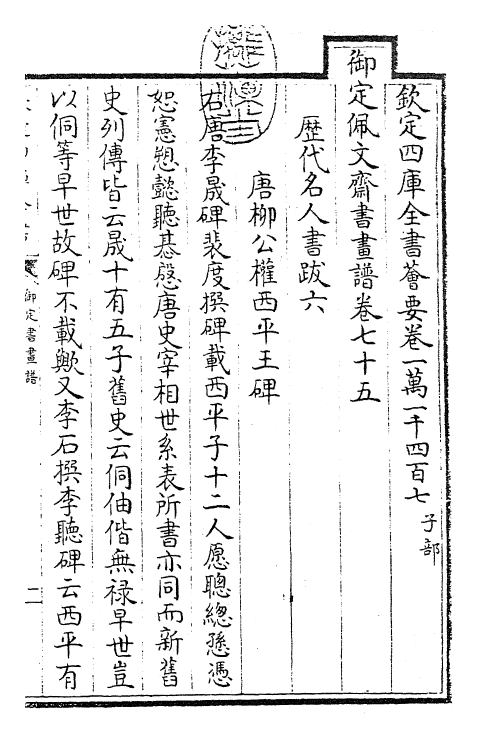 欽定四庫全書薈要卷一萬一千四百七 子部
御定佩文齋書畫譜卷七十五
歷代名人書跋六
唐柳公權西平王碑
右唐李晟碑裴度撰碑載西平子十二人愿聰總愻憑
恕憲愬懿聽惎慇唐史宰相世系表所書亦同而新舊
史列傳皆云晟十有五子舊史云侗伷偕無祿早世豈
以侗等早世故碑不載歟又李石撰李聽碑云西平有
御定書畫譜